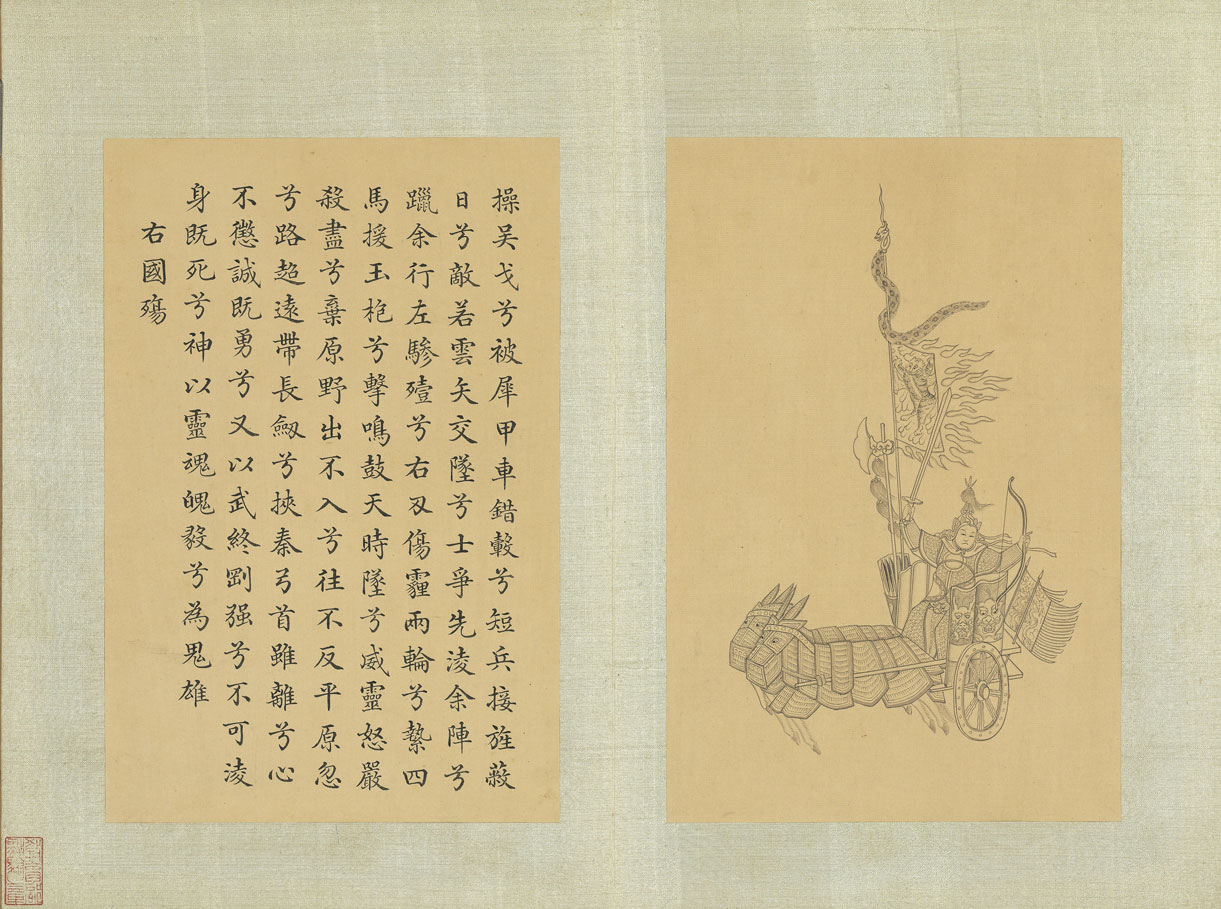 操吴戈兮被犀甲車錯轂兮短兵接旌蔽
日兮敵若雲矢交墜兮士爭先淩余陣兮
躐余行左驂殪兮右刃傷霾兩輪兮縶四
馬援玉枹兮擊鳴鼓天時墜兮威靈怒嚴
殺盡兮棄原野出不入兮往不反平原忽
兮路超遠帶長劔兮挾秦弓首雖離兮心
不懲誠既勇兮又以武終剛强兮不可淩
身既死兮神以靈魂魄毅兮為鬼雄
右國殤